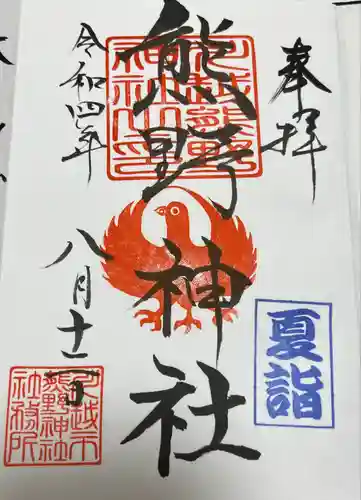 奉拝
熊野神社
令和四年
八月十一日
川越熊野
神社之印
夏詣
川越市
熊野神社
社務所